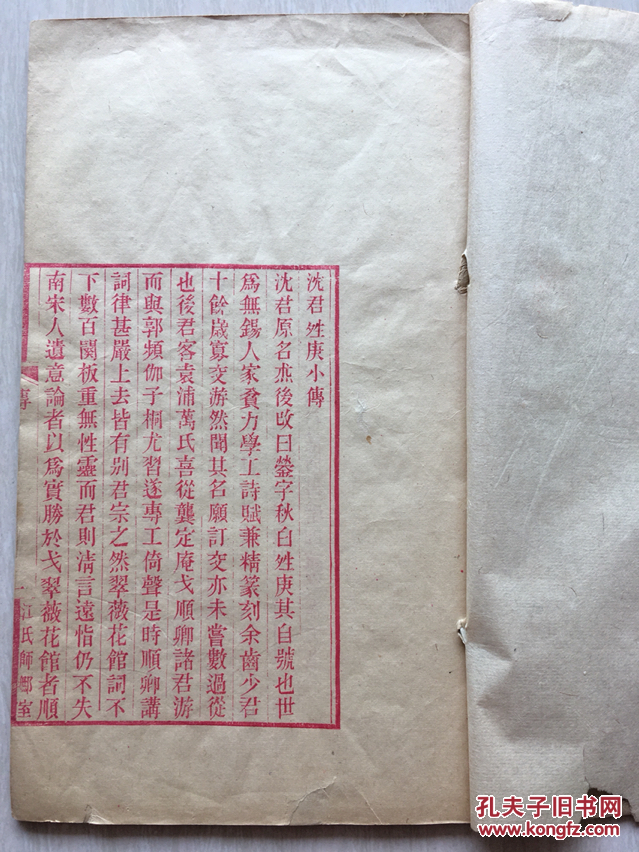 沈君姓庚小傳
沈君原名燕後改曰鎣字秋白姓庚其自號也世
爲無錫人家貧力學工詩賦兼精篆刻余齒少君
十餘歲寡交游然聞其名願訂交亦未嘗數過從
也後君客袁浦萬氏喜從龔定庵戈順卿諸君游
而與郭頻伽子桐尤習遂專工倚聲是時順卿講
詞律甚嚴上去皆有别君宗之然翠薇花館詞不
下數百闋板重無性靈而君則清言遠恉仍不失
南宋人遺意論者以爲實勝於戈翠薇花館者順
傳
一
江氏師鄦室
孔夫子旧书网
www.kongfz.com